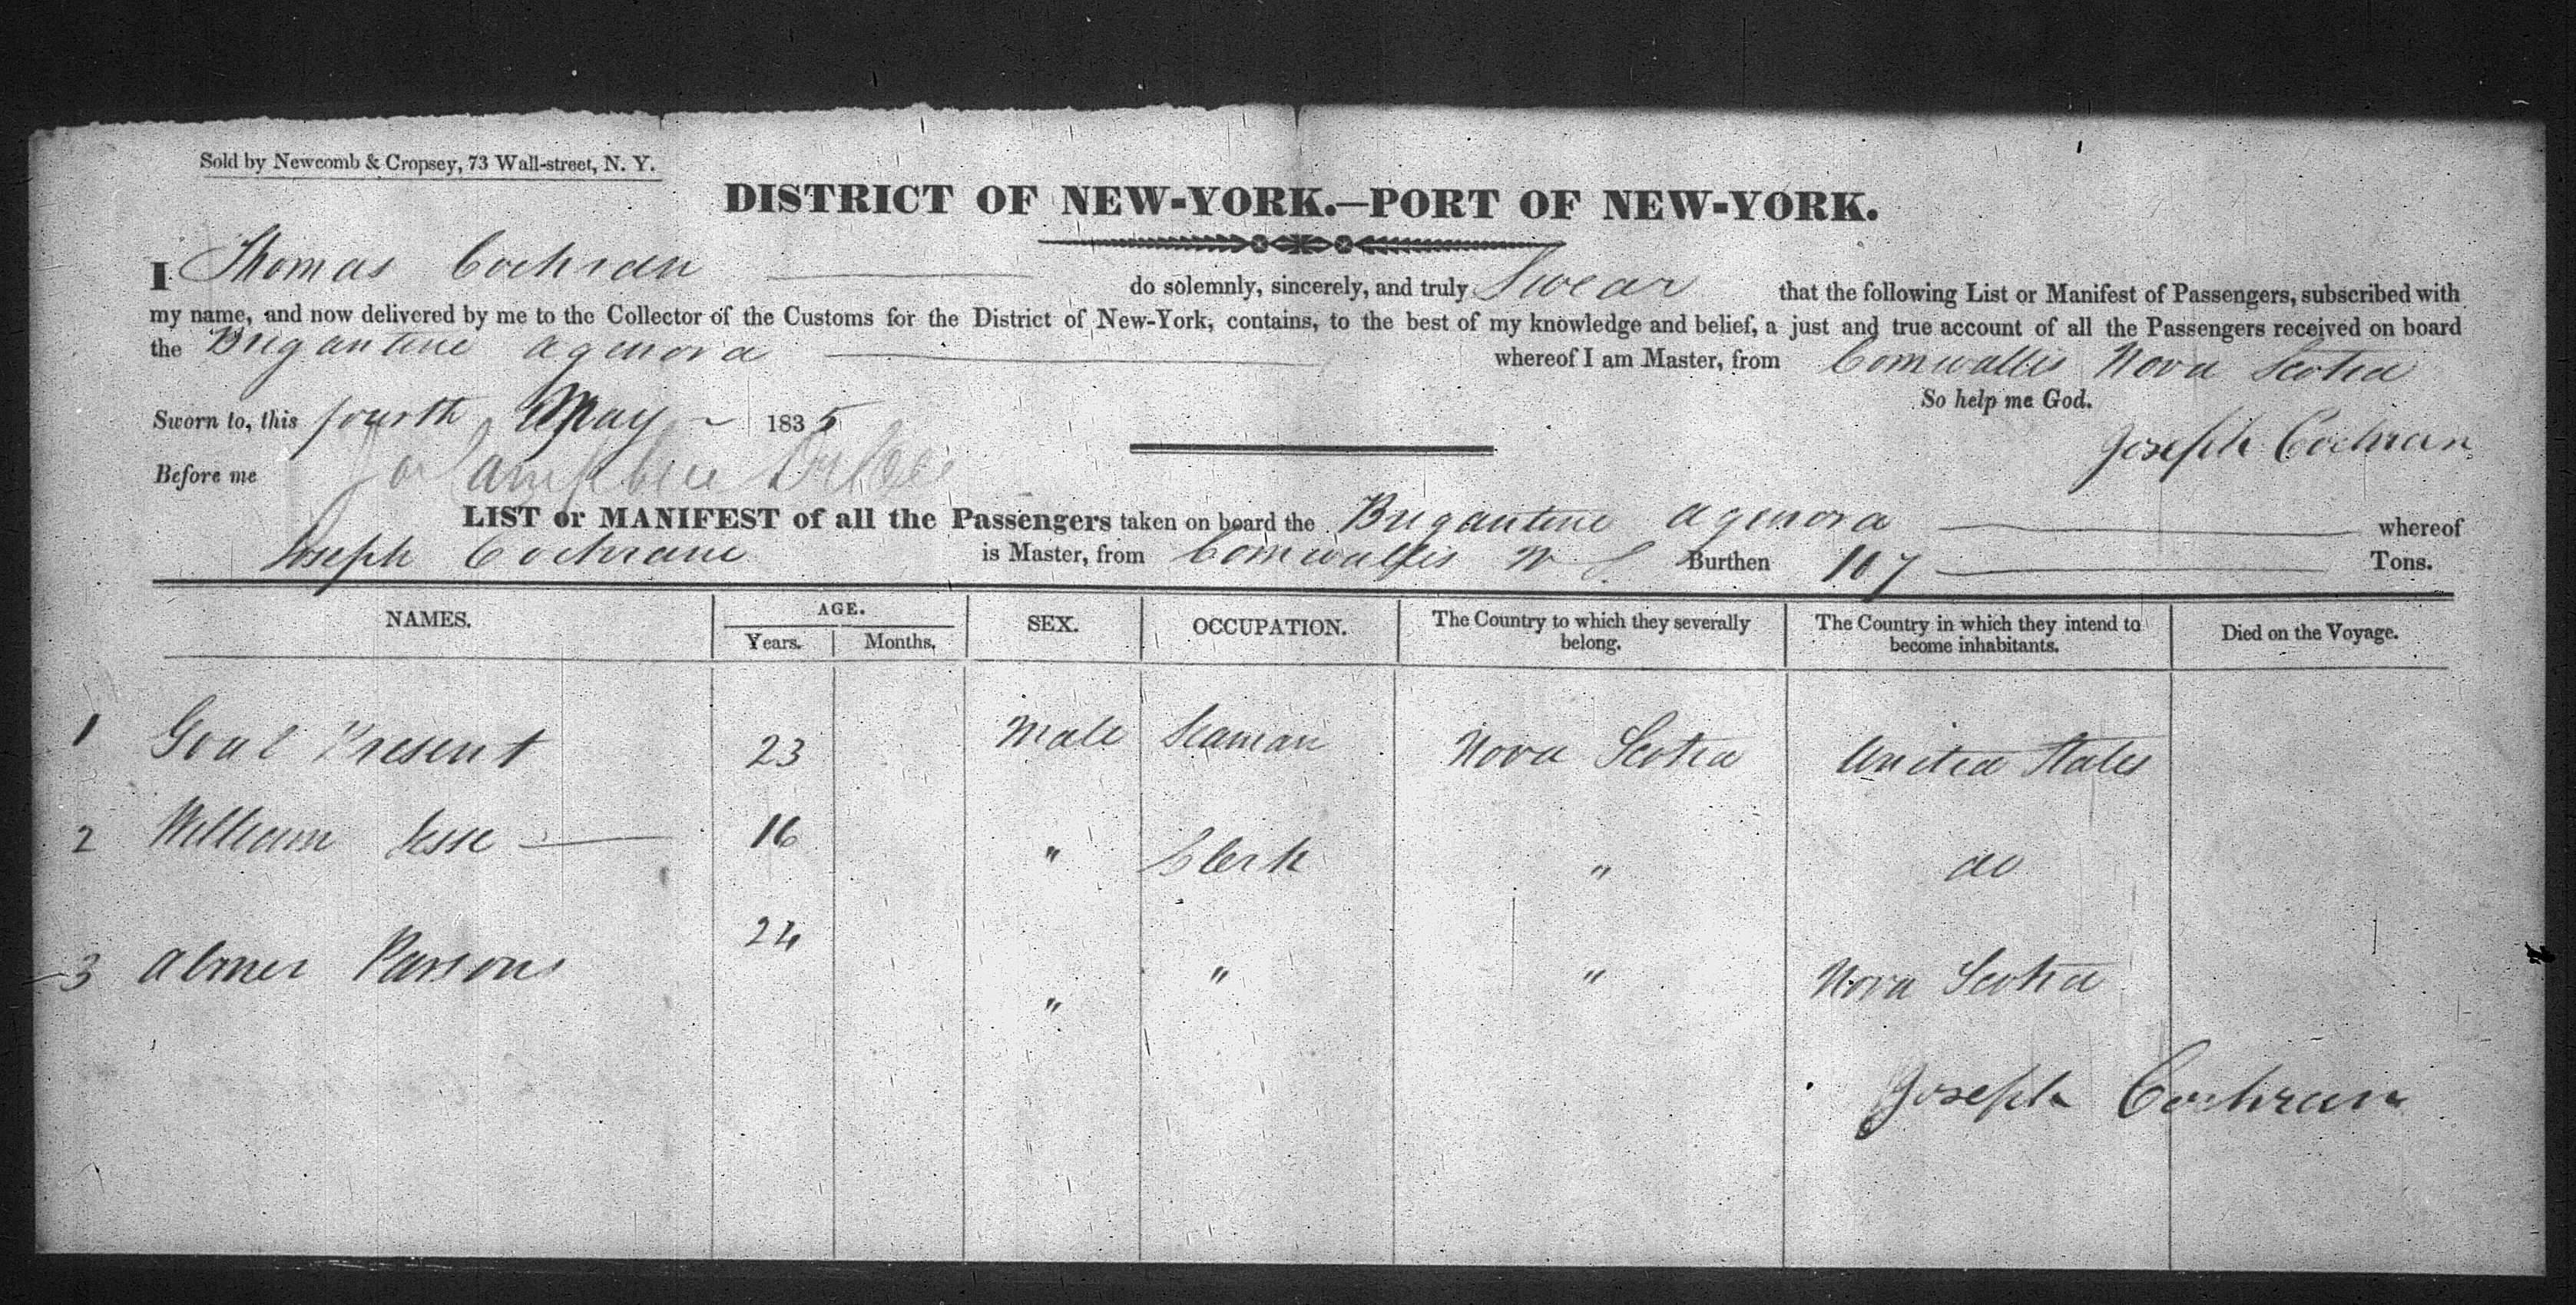 Sold by Newcomb & Cropsey, 73 Wall-street, N. Y.
DISTRICT OF NEW-YORK.—PORT OF NEW-YORK.
I Thomas Cochran do solemnly, sincerely, and truly Swear that the following List or Manifest of Passengers, subscribed with
my name, and now delivered by me to the Collector of the Customs for the District of New-York, contains, to the best of my knowledge and belief, a just and true account of all the Passengers received on board
the Brigantine Agenora whereof I am Master, from Cornwallis Nova Scotia
So help me God.
Sworn to, this fourth May 1835
Joseph Cochran
Before me
LIST or MANIFEST of all the Passengers taken on board the Brigantine Agenora whereof
Joseph Cochrane is Master, from Cornwallis N S Burthen 107 Tons.
NAMES. AGE. Years. Months. SEX. OCCUPATION. The Country to which they severally belong. The Country in which they intend to become inhabitants. Died on the Voyage.
1 Present 23 Male Seaman Nova Scotia United States
2 William Jesse 16 " Clerk " do
3 Abner Parsons 24 " " " Nova Scotia
Joseph Cochran